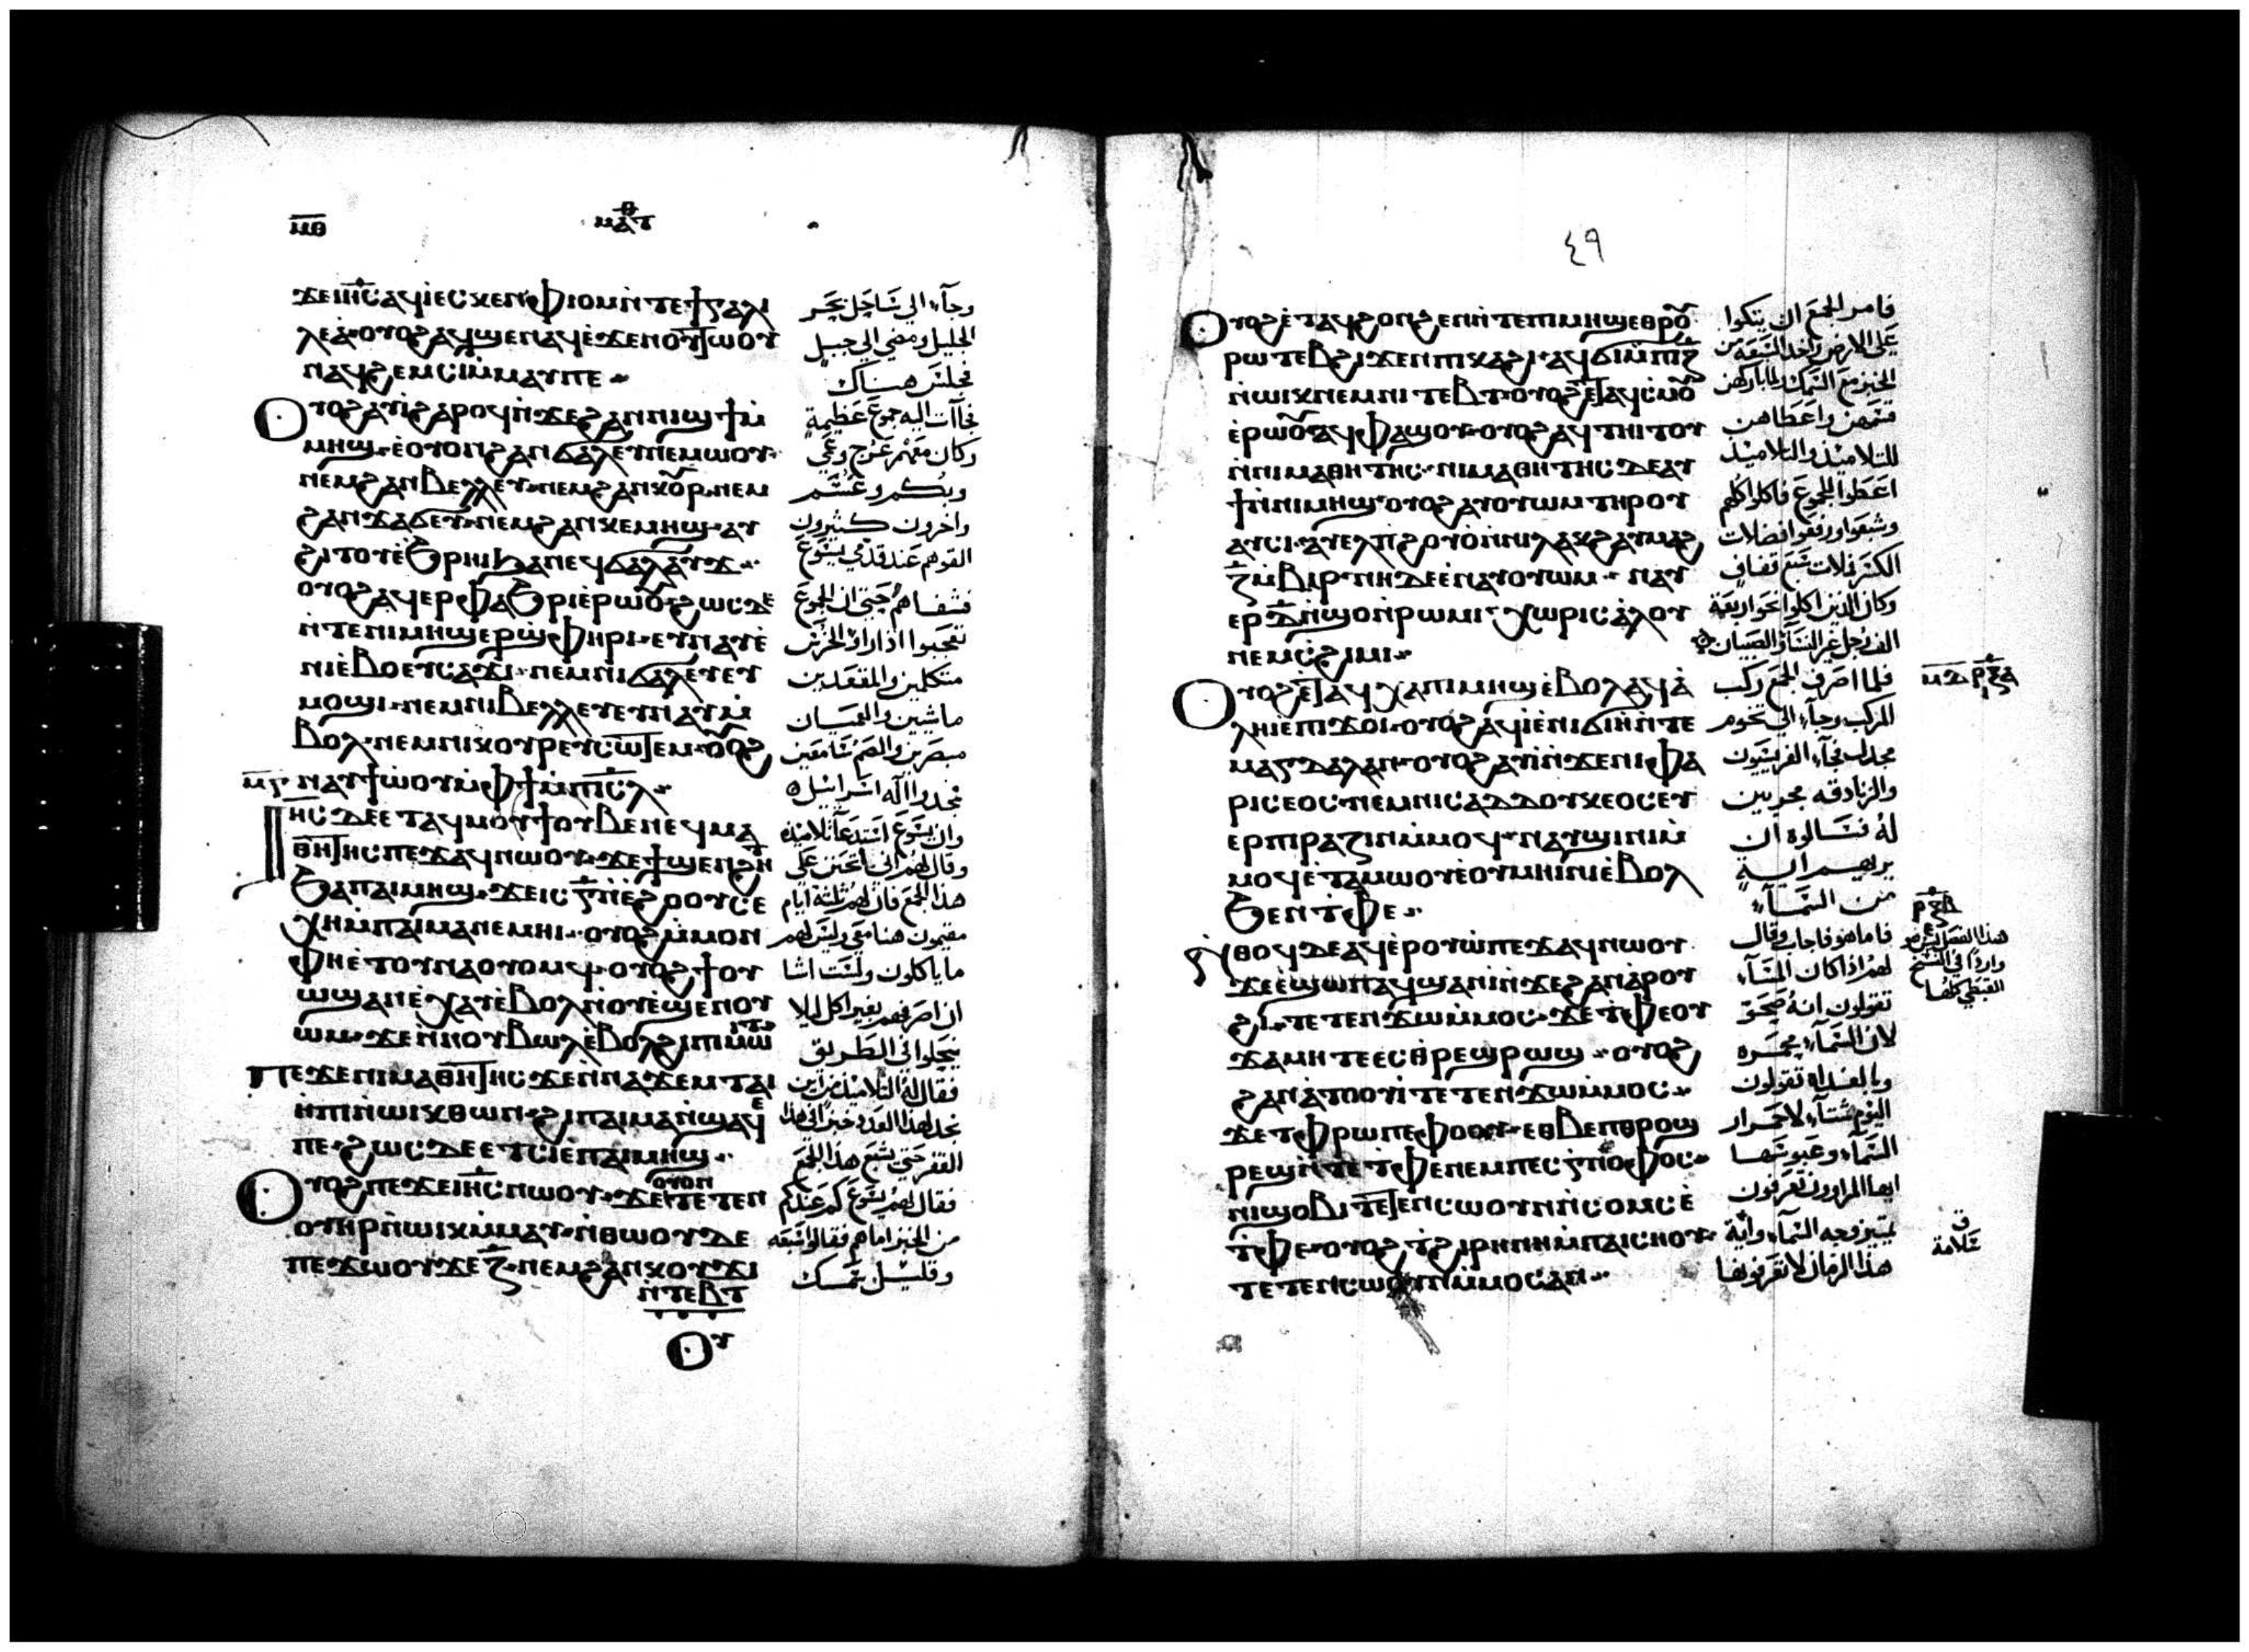 ⲙⲑ
ⲙⲁⲧⲑ
ϫⲉⲓⲏ̅ⲥ̅ ⲁϥⲓⲉⲥⲕⲉⲛⲫⲓⲟⲙⲛ̀ⲧⲉϯⲅⲁⲗⲓ
ⲗⲉⲁ̀ ⲟⲩⲟϩ ⲁϥϣⲉⲛⲁϥⲉ̀ϫⲉⲛⲟⲩⲧⲱⲟⲩ
ⲛⲁϥϩⲉⲙⲥⲓⲙ̀ⲙⲁⲩⲡⲉ
ⲟⲩⲟϩ ⲁⲩⲓ̀ϩⲁⲣⲟϥⲛ̀ϫⲉϩⲁⲛⲛⲓϣϯⲙ̀
ⲙⲏϣ ⲉ̀ⲟⲩⲟⲛϩⲁⲛϭⲁⲗⲉⲩⲛⲉⲙⲱⲟⲩ
ⲛⲉⲙϩⲁⲛⲃⲉⲗⲗⲉⲩ ⲛⲉⲙϩⲁⲛⲕⲟⲩⲣ ⲛⲉⲙ
ϩⲁⲛϫⲁϭⲉⲩ ⲛⲉⲙϩⲁⲛⲕⲉⲙⲏϣ ⲁⲩ
ϩⲓⲧⲟⲩⲉ̀ϧⲣⲏⲓϧⲁⲛⲉϥϭⲁⲗⲁⲩϫ
ⲟⲩⲟϩ ⲁϥⲉⲣⲫⲁϧⲣⲓⲉ̀ⲣⲱⲟⲩ ϩⲱⲥⲇⲉ
ⲛ̀ⲧⲉⲛⲓⲙⲏϣⲉⲣϣ̀ⲫⲏⲣⲓ ⲉⲩⲛⲁⲩⲉ̀
ⲛⲓⲉ̀ⲃⲟⲉⲩⲥⲁϫⲓ ⲛⲉⲙⲛⲓϭⲁⲗⲉⲩⲉⲩ
ⲙⲟϣⲓ ⲛⲉⲙⲛⲓⲃⲉⲗⲗⲉⲩⲉⲩⲛⲁⲩⲙ̀
ⲃⲟⲗ ⲛⲉⲙⲛⲓⲕⲟⲩⲣⲉⲩⲥⲱⲧⲉⲙ ⲟⲩⲟϩ
ⲙⲅ ⲛⲁⲩϯⲱ̀ⲟⲩⲙ̀ⲫϯⲙ̀ⲡⲓⲥ̅ⲗ̅
ⲓⲏⲥ ⲇⲉⲉⲧⲁϥⲙⲟⲩϯⲟⲩⲃⲉⲛⲉϥⲙⲁ
ⲑⲏⲧⲏⲥⲡⲉϫⲁϥⲛⲱⲟⲩ ϫⲉϯϣⲉⲛϩⲏⲧ
ϧⲁⲡⲁⲓⲙⲏϣ ϫⲉⲓⲥⲅ̅ⲛ̀ⲉϩⲟⲟⲩⲥⲉ
ⲭⲏⲙ̀ⲡⲁⲓⲙⲁⲛⲉⲙⲏⲓ ⲟⲩⲟϩ ⲙ̀ⲙⲟⲛ
ⲫⲏⲉ̀ⲧⲟⲩⲛⲁⲟⲩⲟⲙϥ ⲟⲩⲟϩ ϯⲟⲩ
ⲱϣⲁⲛⲉ̀ⲭⲁⲩⲉ̀ⲃⲟⲗⲛ̀ⲟⲩⲉϣⲉⲛⲟⲩ
ⲱⲙ ϫⲉⲛ̀ⲛⲟⲩⲃⲱⲗⲉ̀ⲃⲟⲗϩⲓⲡⲓⲙⲱⲓⲧ
ⲡⲉϫⲉⲛⲓⲙⲁⲑⲏⲧⲏⲥ ϫⲉⲛ̀ⲛⲁϫⲉⲙⲧⲁⲓ
ⲏ̀ⲡⲓⲛ̀ⲱⲓⲕⲑⲱⲛ ϩⲓⲡⲁⲓⲙⲁⲛ̀ϣⲁϥⲉ
ⲡⲉ ϩⲱⲥⲇⲉⲉⲧⲥⲓⲉ̀ⲡⲁⲓⲙⲏϣ
ⲟⲩⲟϩ ⲡⲉϫⲉⲓⲏ̅ⲥ̅ⲛⲱⲟⲩ ϫⲉⲟⲩⲟⲛⲧⲉⲧⲉⲛ
ⲟⲩⲏⲣⲛ̀ⲱⲓⲕⲙ̀ⲙⲁⲩ ⲛ̀ⲑⲱⲟⲩⲇⲉ
ⲡⲉϫⲱⲟⲩϫⲉⲍ̅ ⲛⲉⲙϩⲁⲛⲕⲟⲩϫⲓ
ⲛⲧⲉⲃⲧ
ⲟⲩ
وجآء الي شاطي بحر
الجليل ومضي الي جبل
فجلس هناك
فجآت اليه جموع عظيمة
وكان معهم عرج وعمي
وبكم وعسم
واخرون كثيرون
القوهم عند قدمي يسوع
فشفاهم حتي ان الجموع
تعجبوا اذا راوا الخرس
متكلمين والمقعدين
ماشيين والعميان
مبصرين والصم سامعين
مجدوا اله اسرائيل
وان يسوع استدعا تلاميذه
وقال لهم اني اتحنن علي
هذا الجمع فان لهم ثلثة ايام
مقيمون هنا معي وليس لهم
ما ياكلون ولست اشا
ان اصرفهم بغير اكل ليلا
ينحلوا في الطريق
فقال له التلاميذ من اين
نجد لهذا العدد خبز في هذا
القفر حتي يشبع هذا الجمع
فقال لهم يسوع كم عندكم
من الخبز امامهم فقالوا سبعه
وقليل سمك
٤٩
ⲟⲩⲟϩ ⲉ̀ⲧⲁϥϩⲟⲛϩⲉⲛⲛ̀ⲧⲉⲡⲓⲙⲏϣⲉⲑⲣⲟⲩ
ⲣⲱⲧⲉⲃϩⲓϫⲉⲛⲡⲓⲕⲁϩⲓ ⲁϥϭⲓⲙ̀ⲡⲓⲍ̅
ⲛ̀ⲱⲓⲕⲛⲉⲙⲛⲓⲧⲉⲃⲧ ⲟⲩⲟϩ ⲉⲧⲁϥⲥⲙⲟⲩ
ⲉ̀ⲣⲱⲟⲩ ⲁϥⲫⲁϣⲟⲩ ⲟⲩⲟϩ ⲁϥⲧⲏⲓⲧⲟⲩ
ⲛ̀ⲛⲓⲙⲁⲑⲏⲧⲏⲥ ⲛⲓⲙⲁⲑⲏⲧⲏⲥ ⲇⲉⲁⲩ
ϯⲛ̀ⲛⲓⲙⲏϣ ⲟⲩⲟϩ ⲁⲩⲟⲩⲱⲙⲧⲏⲣⲟⲩ
ⲁⲩⲥⲓ ⲁⲩⲉⲗⲡ̀ϩⲟⲩⲟ̀ⲛ̀ⲛⲓⲗⲁⲕϩ ⲁⲩⲙⲁϩ
ⲍ̅ⲙ̀ⲃⲓⲣ ⲛⲏⲇⲉⲉ̀ⲛⲁⲩⲟⲩⲱⲙ ⲛⲁⲩ
ⲉⲣⲇ̅ⲛ̀ϣⲟⲛ̀ⲣⲱⲙⲓ ⲭⲱⲣⲓⲥⲁ̀ⲗⲟⲩ
ⲛⲉⲙⲥ̀ϩⲓⲙⲓ
ⲟⲩⲟϩ ⲉⲧⲁϥⲭⲁⲡⲓⲙⲏϣⲉ̀ⲃⲟⲗⲁϥⲁ̀
ⲗⲏⲓⲉ̀ⲡⲓϫⲟⲓ ⲟⲩⲟϩ ⲁϥⲓⲉ̀ⲛⲓϭⲓⲏⲛ̀ⲧⲉ
ⲙⲁⲅⲇⲁⲗⲁⲛ ⲟⲩⲟϩ ⲁⲩⲓ̀ⲛ̀ϫⲉⲛⲓⲫⲁ
ⲣⲓⲥⲉⲟⲥ ⲛⲉⲙⲛⲓⲥⲁⲇⲇⲟⲩⲕⲉⲟⲥⲉⲩ
ⲉⲣⲡⲓⲣⲁⲍⲓⲛⲙ̀ⲙⲟϥ ⲛⲁⲩϣⲓⲛⲓⲙ̀
ⲙⲟϥⲉ̀ⲧⲁⲙⲱⲟⲩⲉ̀ⲟⲩⲙⲏⲓⲛⲓⲉ̀ⲃⲟⲗ
ϧⲉⲛⲧ̀ⲫⲉ
ⲛ̀ⲑⲟϥⲇⲉⲁϥⲉ̀ⲣⲟⲩⲱ̀ⲡⲉϫⲁϥⲛⲱⲟⲩ
ϫⲉⲉ̀ϣⲱⲡⲁϥϣⲁⲛⲓ̀ⲛ̀ϫⲉϩⲁⲛⲁ̀ⲣⲟⲩ
ϩⲓ ⲧⲉⲧⲉⲛϫⲱⲙ̀ⲙⲟⲥ ϫⲉⲧ̀ⲫⲉⲟⲩ
ϫⲁⲙⲏⲧⲉⲉⲥⲑ̀ⲣⲉϣⲣⲱϣ ⲟⲩⲟϩ
ϩⲁⲛⲁ̀ⲧⲟⲟⲩⲓ̀ⲧⲉⲧⲉⲛϫⲱⲙ̀ⲙⲟⲥ
ϫⲉⲧ̀ⲫⲣⲱⲡⲉⲫⲟⲟⲩ ⲉⲑⲃⲉⲡⲑⲣⲟϣ
ⲣⲉϣⲛ̀ⲧⲉⲧ̀ⲫⲉⲛⲉⲙⲡⲉⲥⲅ̀ⲛⲟⲫⲟⲥ
ⲛⲓϣⲟⲃⲓⲧⲉⲧⲉⲛⲥⲱⲟⲩⲛⲛ̀ⲥⲟⲙⲥⲉ̀
ⲧ̀ⲫⲉ ⲟⲩⲟϩ ⲧ̀ϩⲓⲣⲏⲛⲏⲙ̀ⲡⲁⲓⲥⲏⲟⲩ
ⲧⲉⲧⲉⲛⲥⲱⲟⲩⲛⲙ̀ⲙⲟⲥⲁⲛ
فامر الجمع ان يتكوا
علي الارض واخذ السبعة من
الخبز مع السمك فلما باركهن
قسمهن واعطاهن
للتلاميذ والتلاميذ
اعطوا للجموع فاكلوا كلهم
وشبعوا ورفعوا فضلات
الكسر فملات سبع قفاف
وكان الذين اكلوا نحو اربعة
الف رجل غير النسآ والصبيان
فلما اصرف الجمع ركب
المركب وجآء الي تخوم
مجدل فجآء الفريسيون
والزنادقه مجربين
له فسالوه ان
يريهم اية
من السمآء
فاما هو فاجاب وقال
لهم اذا كان المسآء
تقولون انه صحو
لان السمآء محمره
وبالغداه تقولون
اليوم شتآء لاحمرار
السمآء وعبوستها
ايها المراوون تعرفون
تميز وجه السمآء واية
هذا الزمان لا تعرفونها
ⲙⲇ ⲣⲝⲁ
ⲣⲝⲃ
هذا الفصل ليس هو
وارد في النسخ
القبطي كلها
ق
علامة